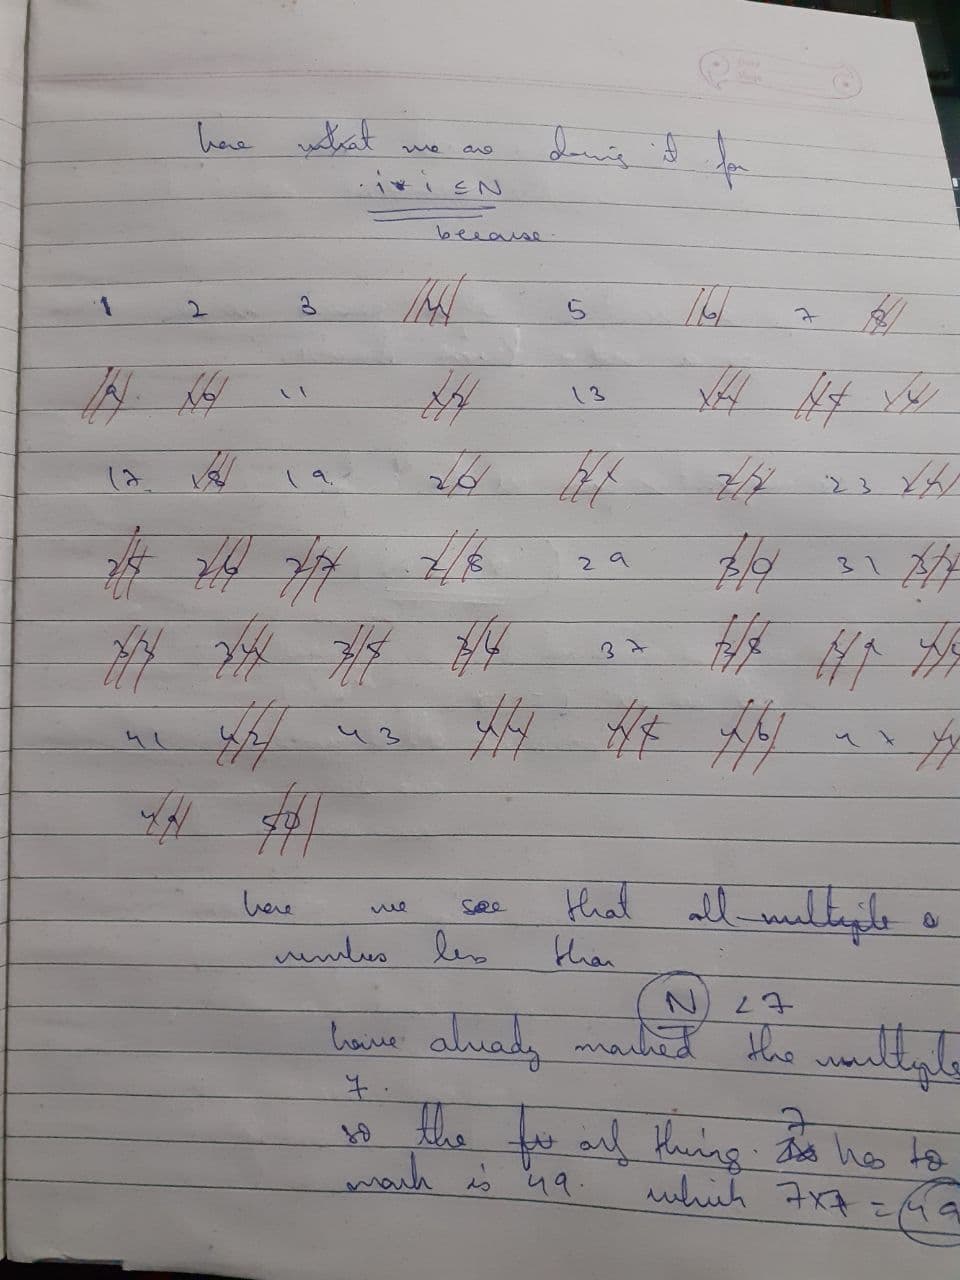 here what we are doing it for
i * i ≤ N
because
1 2 3 4 5 6 7 8
9 10 11 12 13 14 15 16
17 18 19 20 21 22 23 24
25 26 27 28 29 30 31 32
33 34 35 36 37 38 39 40
41 42 43 44 45 46 47
49 50
here we see that all multiple
numbers less than
N < 7
have already marked the multiple
7.
so the thing 7 has to
mark is 49. which 7x7 = 49